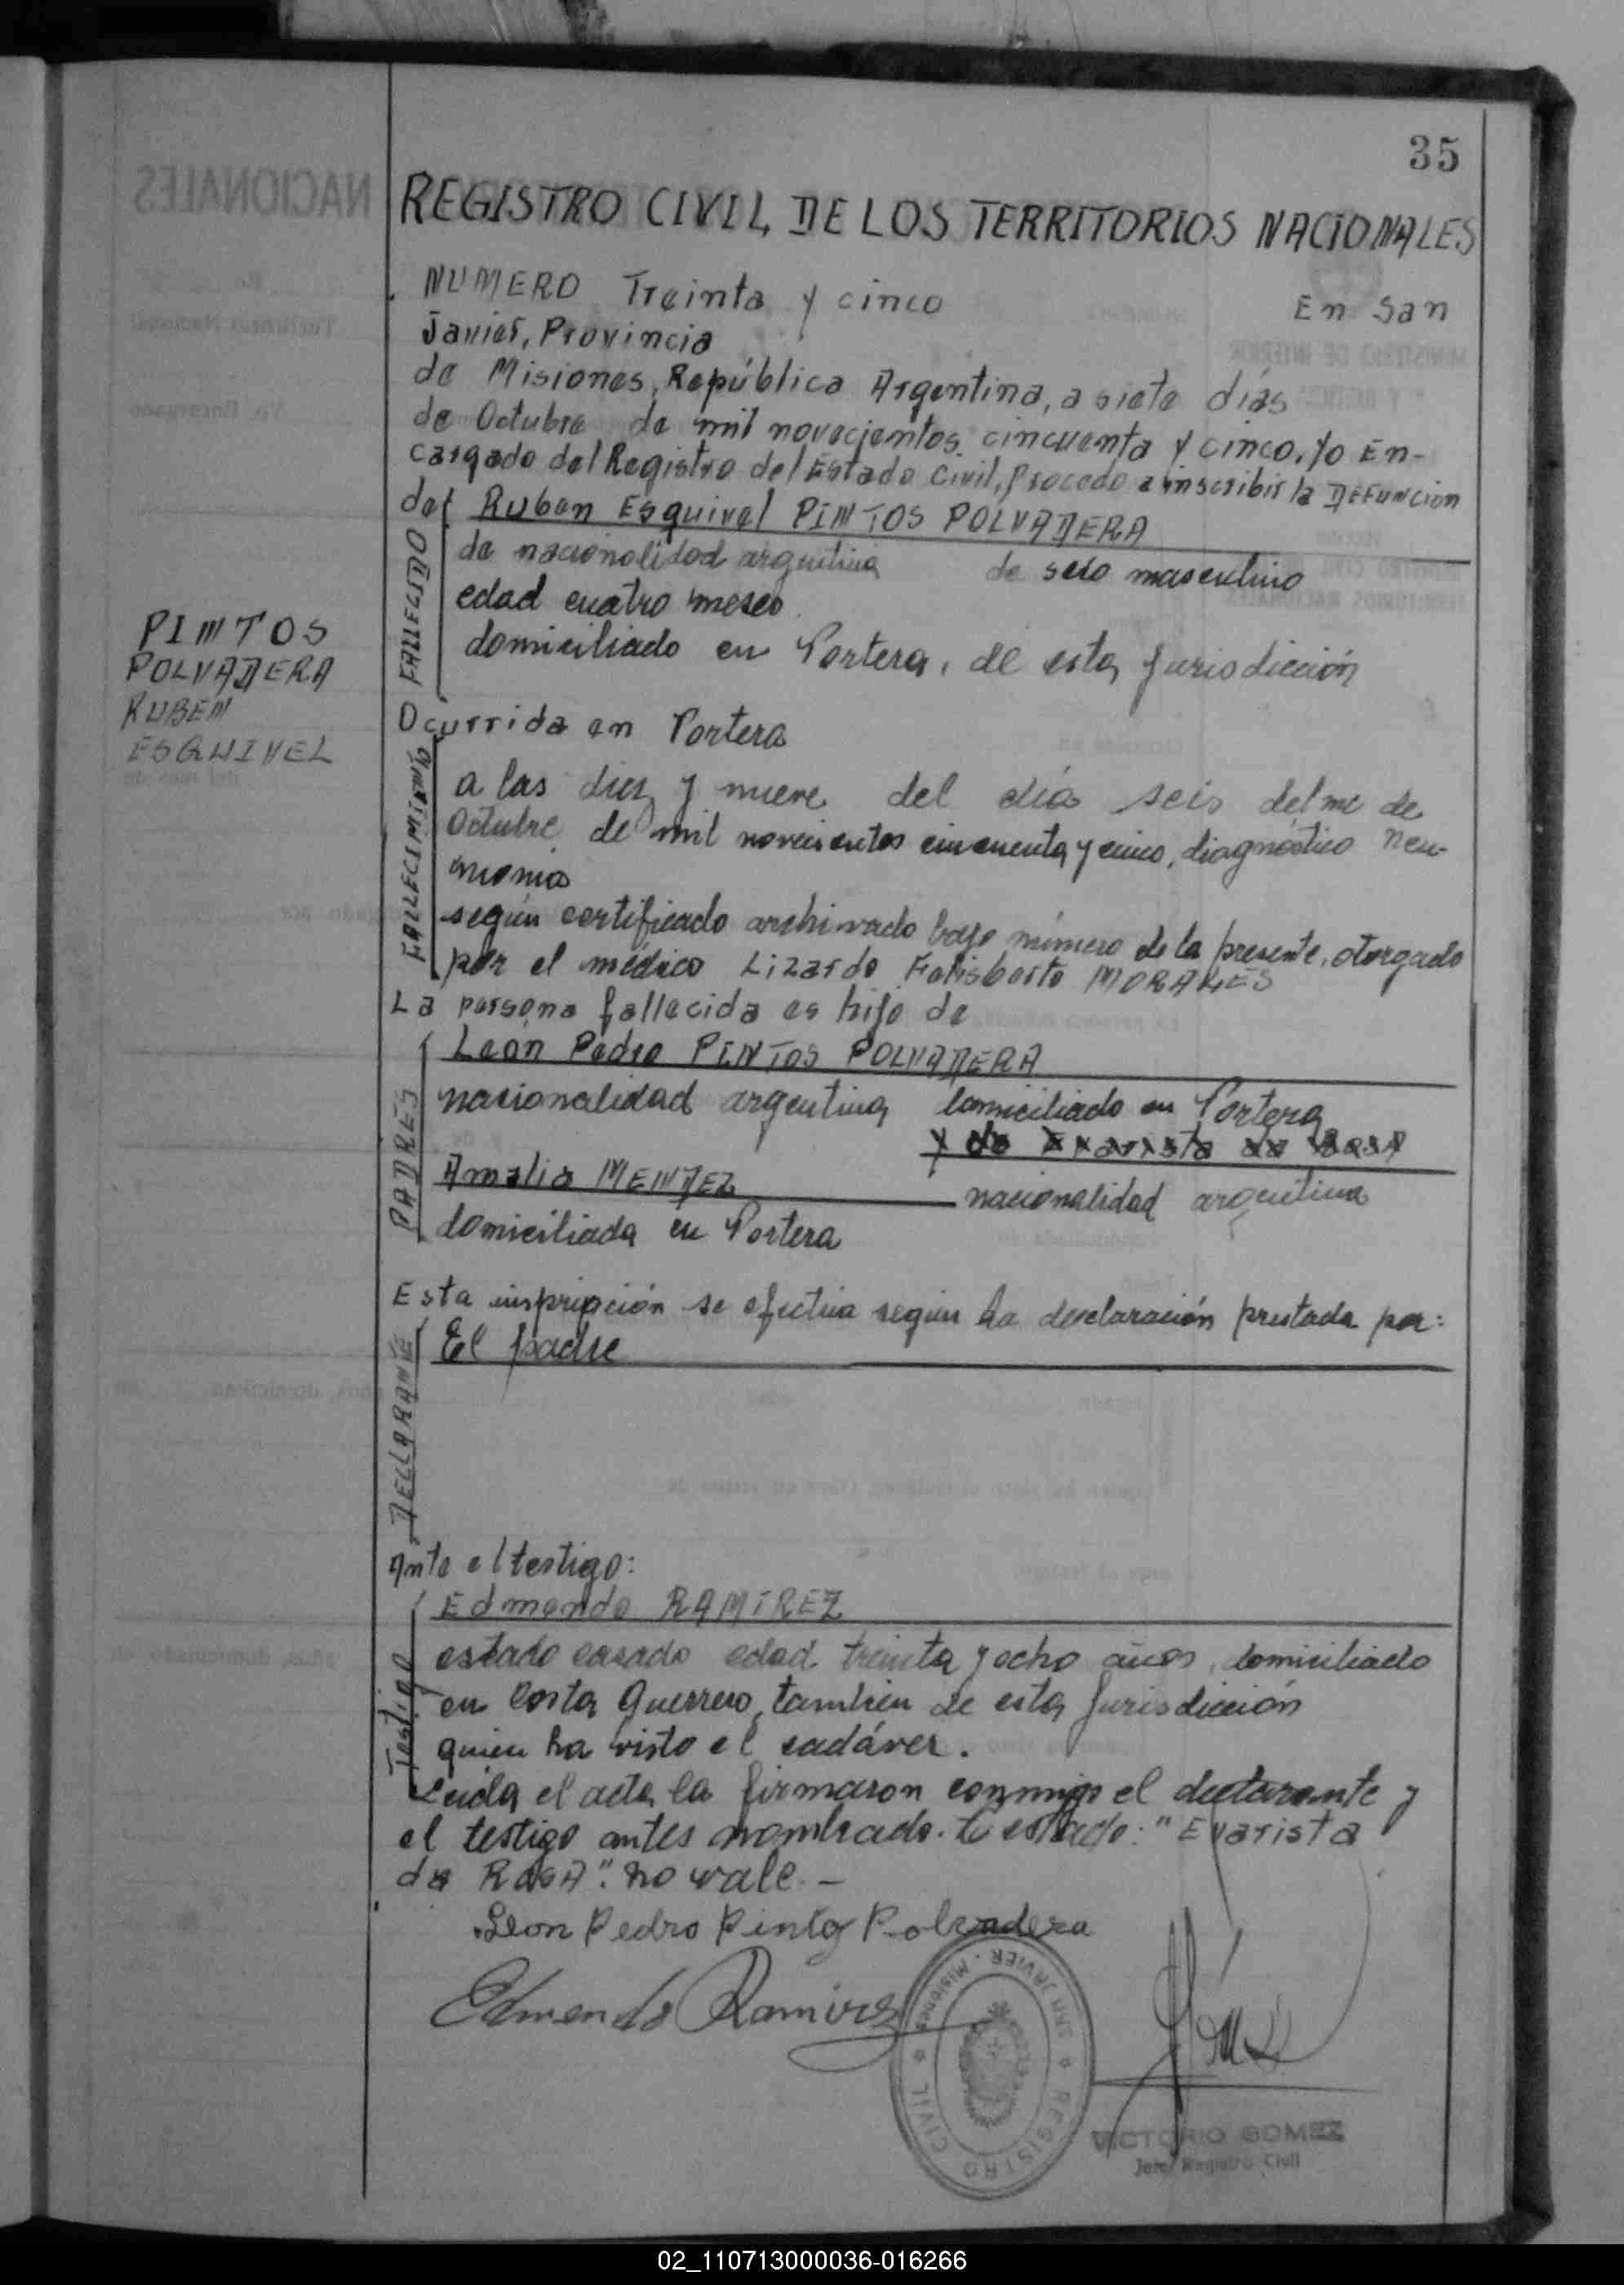 35
REGISTRO CIVIL DE LOS TERRITORIOS NACIONALES
NUMERO Treinta y cinco En San
Javier, Provincia
de Misiones, República Argentina, a siete días
de Octubre de mil novecientos cincuenta y cinco, yo En-
cargado del Registro del Estado Civil, Procedo a inscribir la DEFUNCION
del Ruben Esquivel PINTOS POLVADERA
FALLECIDO
de nacionalidad argentina de sexo masculino
edad cuatro meses
domiciliado en Portera, de esta jurisdicción
PINTOS
POLVADERA
RUBEN
ESQUIVEL
Ocurrida en Portera
FALLECIMIENTO
a las diez y nueve del día seis del me de
Octubre de mil novecientos cincuenta y cinco, diagnóstico neu-
monia
según certificado archivado bajo número de la presente, otorgado
por el médico Lizardo Felisberto MORALES
La persona fallecida es hijo de
PADRES
León Pedro PINTOS POLVADERA
nacionalidad argentina domiciliado en Portera
y de Evarista da Rosa
Amalia MENDEZ nacionalidad argentina
domiciliada en Portera
Esta inspripción se efectua según la desclaración prestada por:
DECLARANTE
El padre
Ante el testigo:
Testigo
Edmondo RAMIREZ
estado casado edad treinta y ocho años, domiciliado
en Costa Guerrero, tambien de esta jurisdicción
quien ha visto el cadáver.
Leida el acta la firmaron conmigo el declarante y
el testigo antes nombrado. Testado: "Evarista
da RosA". no vale. -
Leon Pedro Pinto Polvadera
Edmondo Ramirez
REGISTRO CIVIL * SAN JAVIER - Misiones *
Gómez
VICTORIO GOMEZ
Jefe Registro Civil
02_110713000036-016266